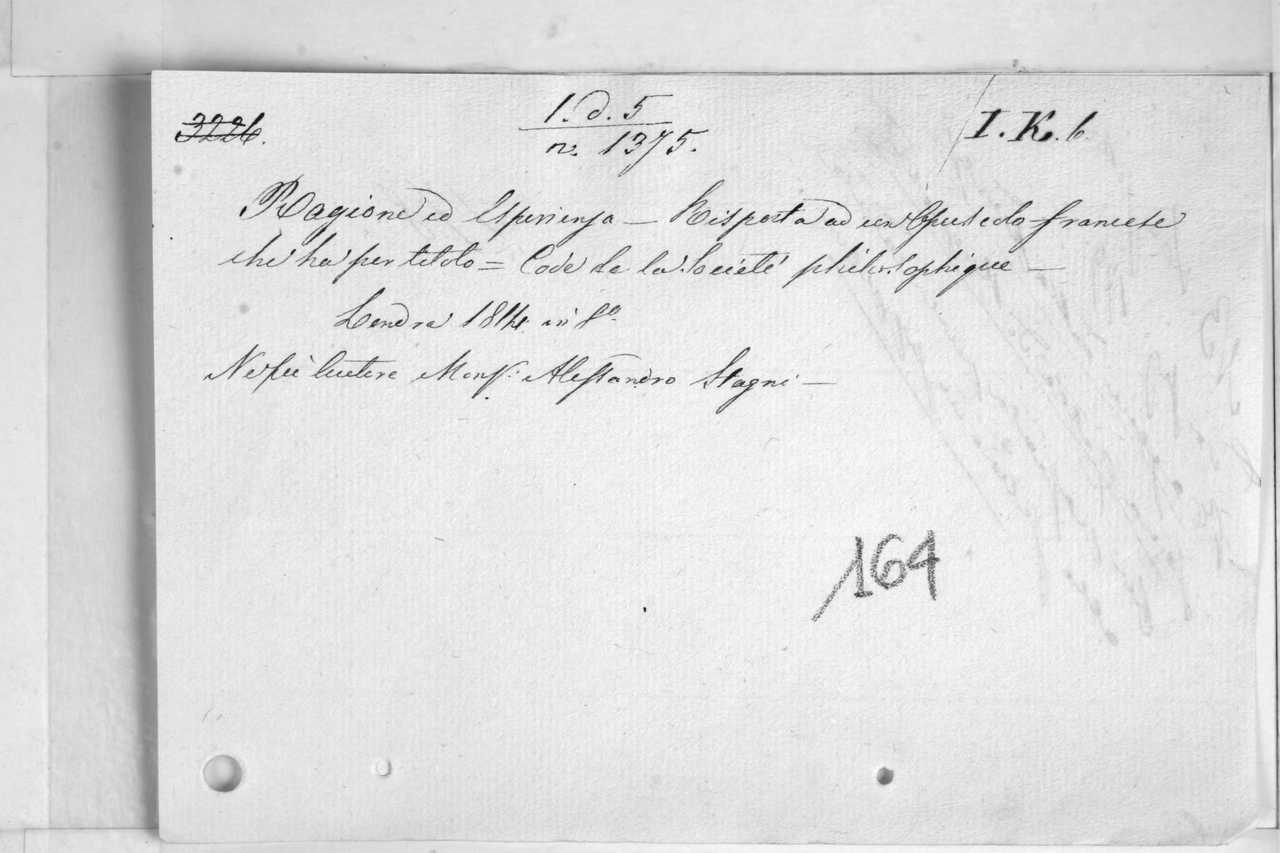 3226.
1. d. 5
n. 1375.
I. K. 6.
Ragione ed Esperienza — Risposta ad un Opuscolo francese
che ha per titolo = Code de la Societé philosophique —
Londra 1814 in 8º
Ne fu lutore Monsr: Alessandro Stagni —
164